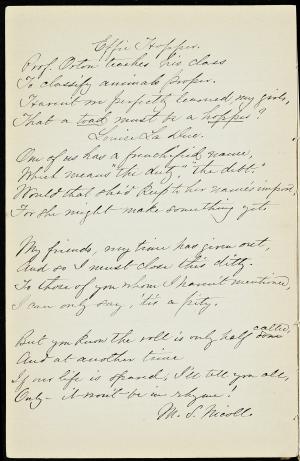 Effie Hopper.
Prof. Orton teaches his class
To classify animals proper.
Haven't we perfectly learned, my girls,
That a toad must be a hopper?
Louise La Due.
One of us has a frenchified name,
Which means "the duty", "the debt."
Would that she'd keep to her name's import,
For she might make something yet.
My friends, my time has given out,
And so I must close this ditty.
To those of you whom I haven't mentioned,
I can only say, 'tis a pity.
But you know the roll is only half done called,
And at another time
If our life is spared, I'll tell you all,
Only - it won't be in rhyme.
M. S. Nicoll.